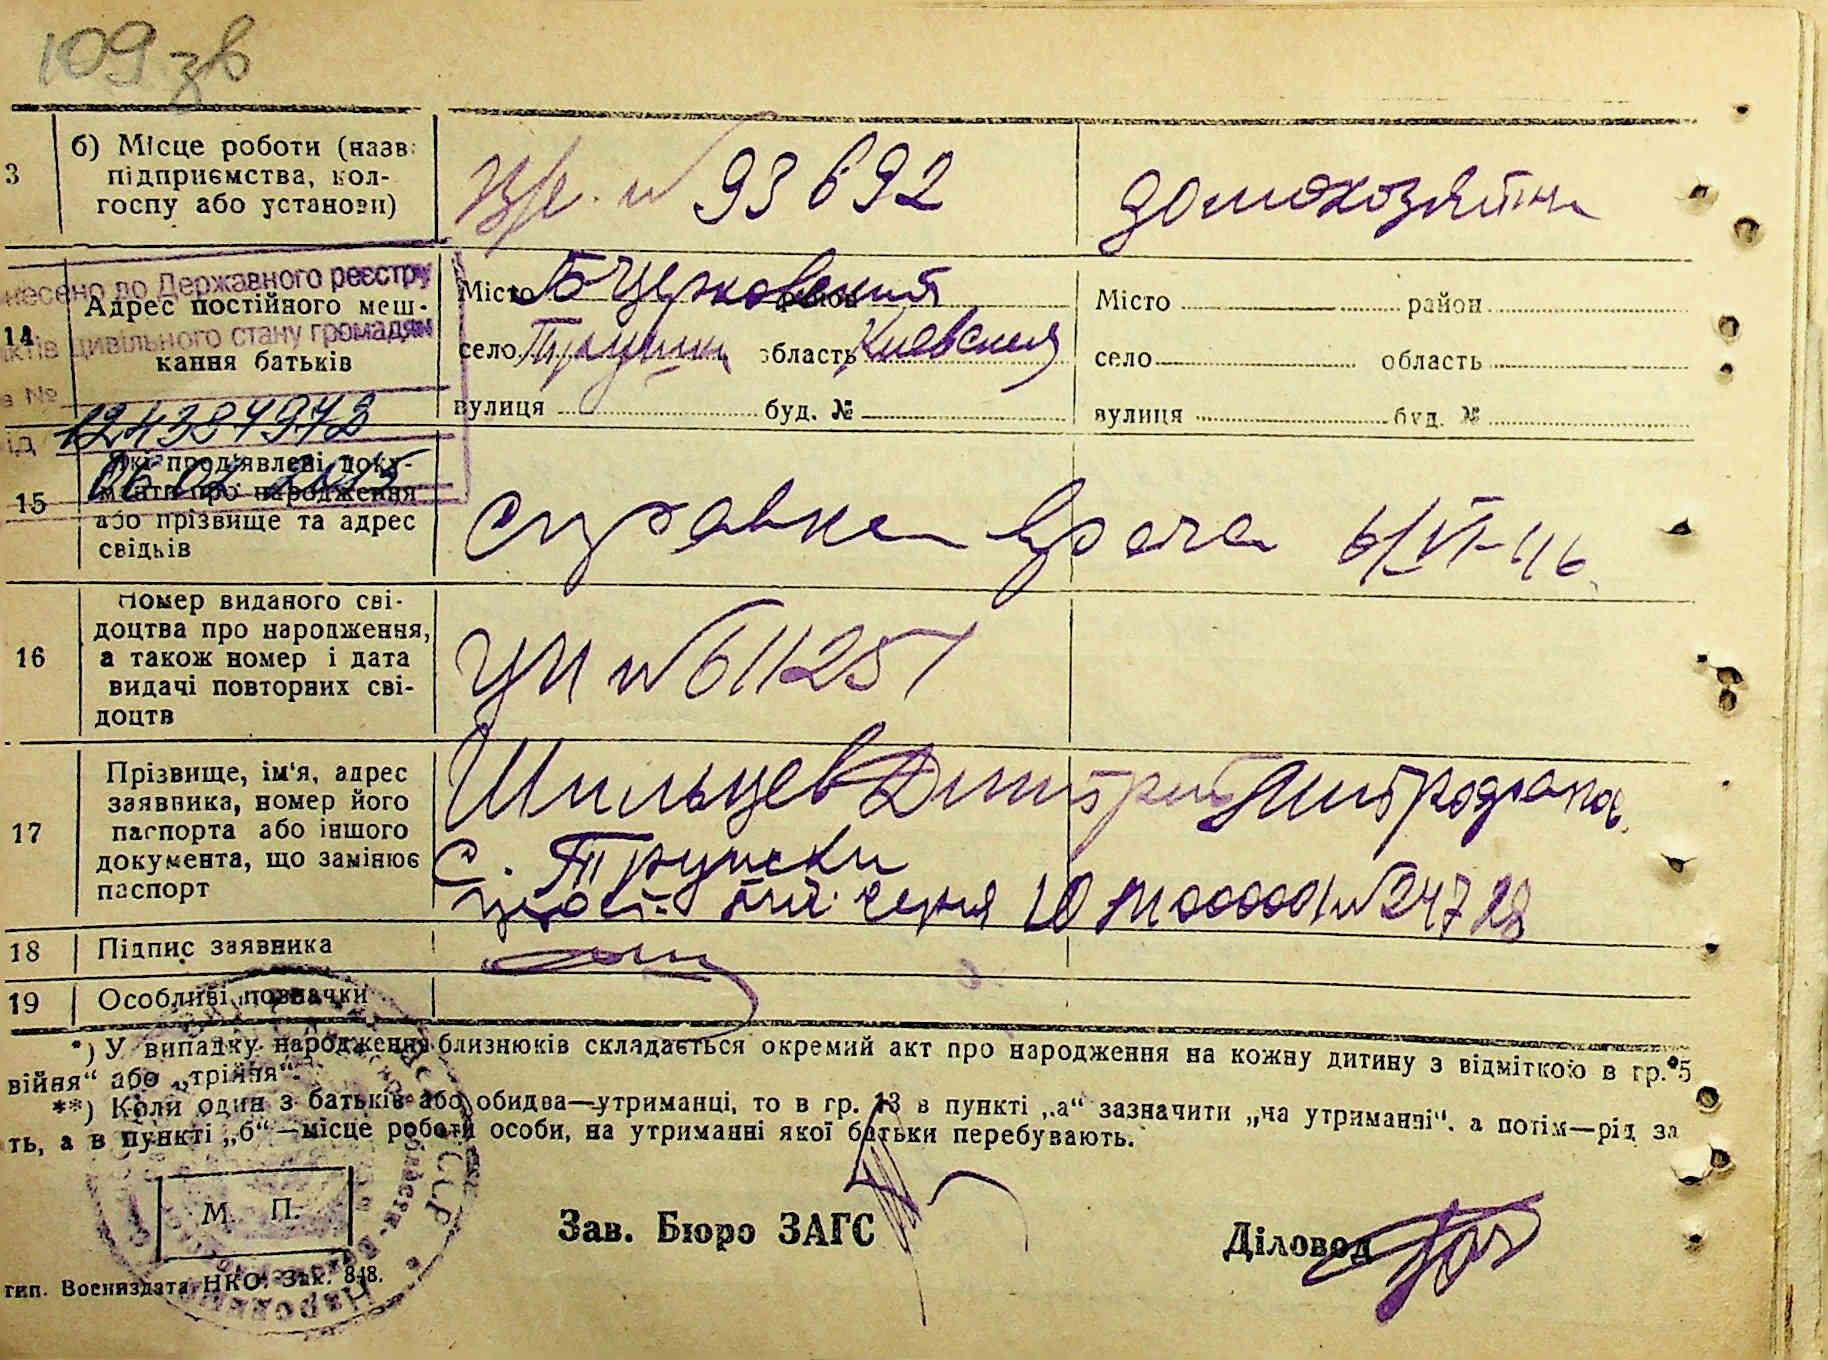 109 зв
3
б) Місце роботи (назв
підприємства, кол-
госпу або установи)
№ 93692
домохозяйка
14
несено до Державного реєстру
Адрес постійного меш-
цивільного стану громадян
кання батьків
№
1243879
06 02
Місто Б Церковский район
село Трушки область Киевская
вулиця буд. №
Місто район
село область
вулиця буд. №
15
Які пред'явлені доку-
менти про народження
або прізвище та адрес
свідків
Справка врача 6/VI-46
16
Номер виданого сві-
доцтва про народження,
а також номер і дата
видачі повторних сві-
доцтв
№ 611251
17
Прізвище, ім'я, адрес
заявника, номер його
паспорта або іншого
документа, що замінює
паспорт
Шильцев Дмитрий
с. Трушки
№ 24728
18
Підпис заявника
19
Особливі позначки
*) У випадку народження близнюків складається окремий акт про народження на кожну дитину з відміткою в гр. 5
війня“ або „трійня“.
**) Коли один з батьків або обидва—утриманці, то в гр. 13 в пункті „а“ зазначити „на утриманні“. а потім—рід за
ть, а в пункті „б“—місце роботи особи, на утриманні якої батьки перебувають.
М. П.
Зав. Бюро ЗАГС
Діловод
тип. Воениздата НКО. Зак. 848.